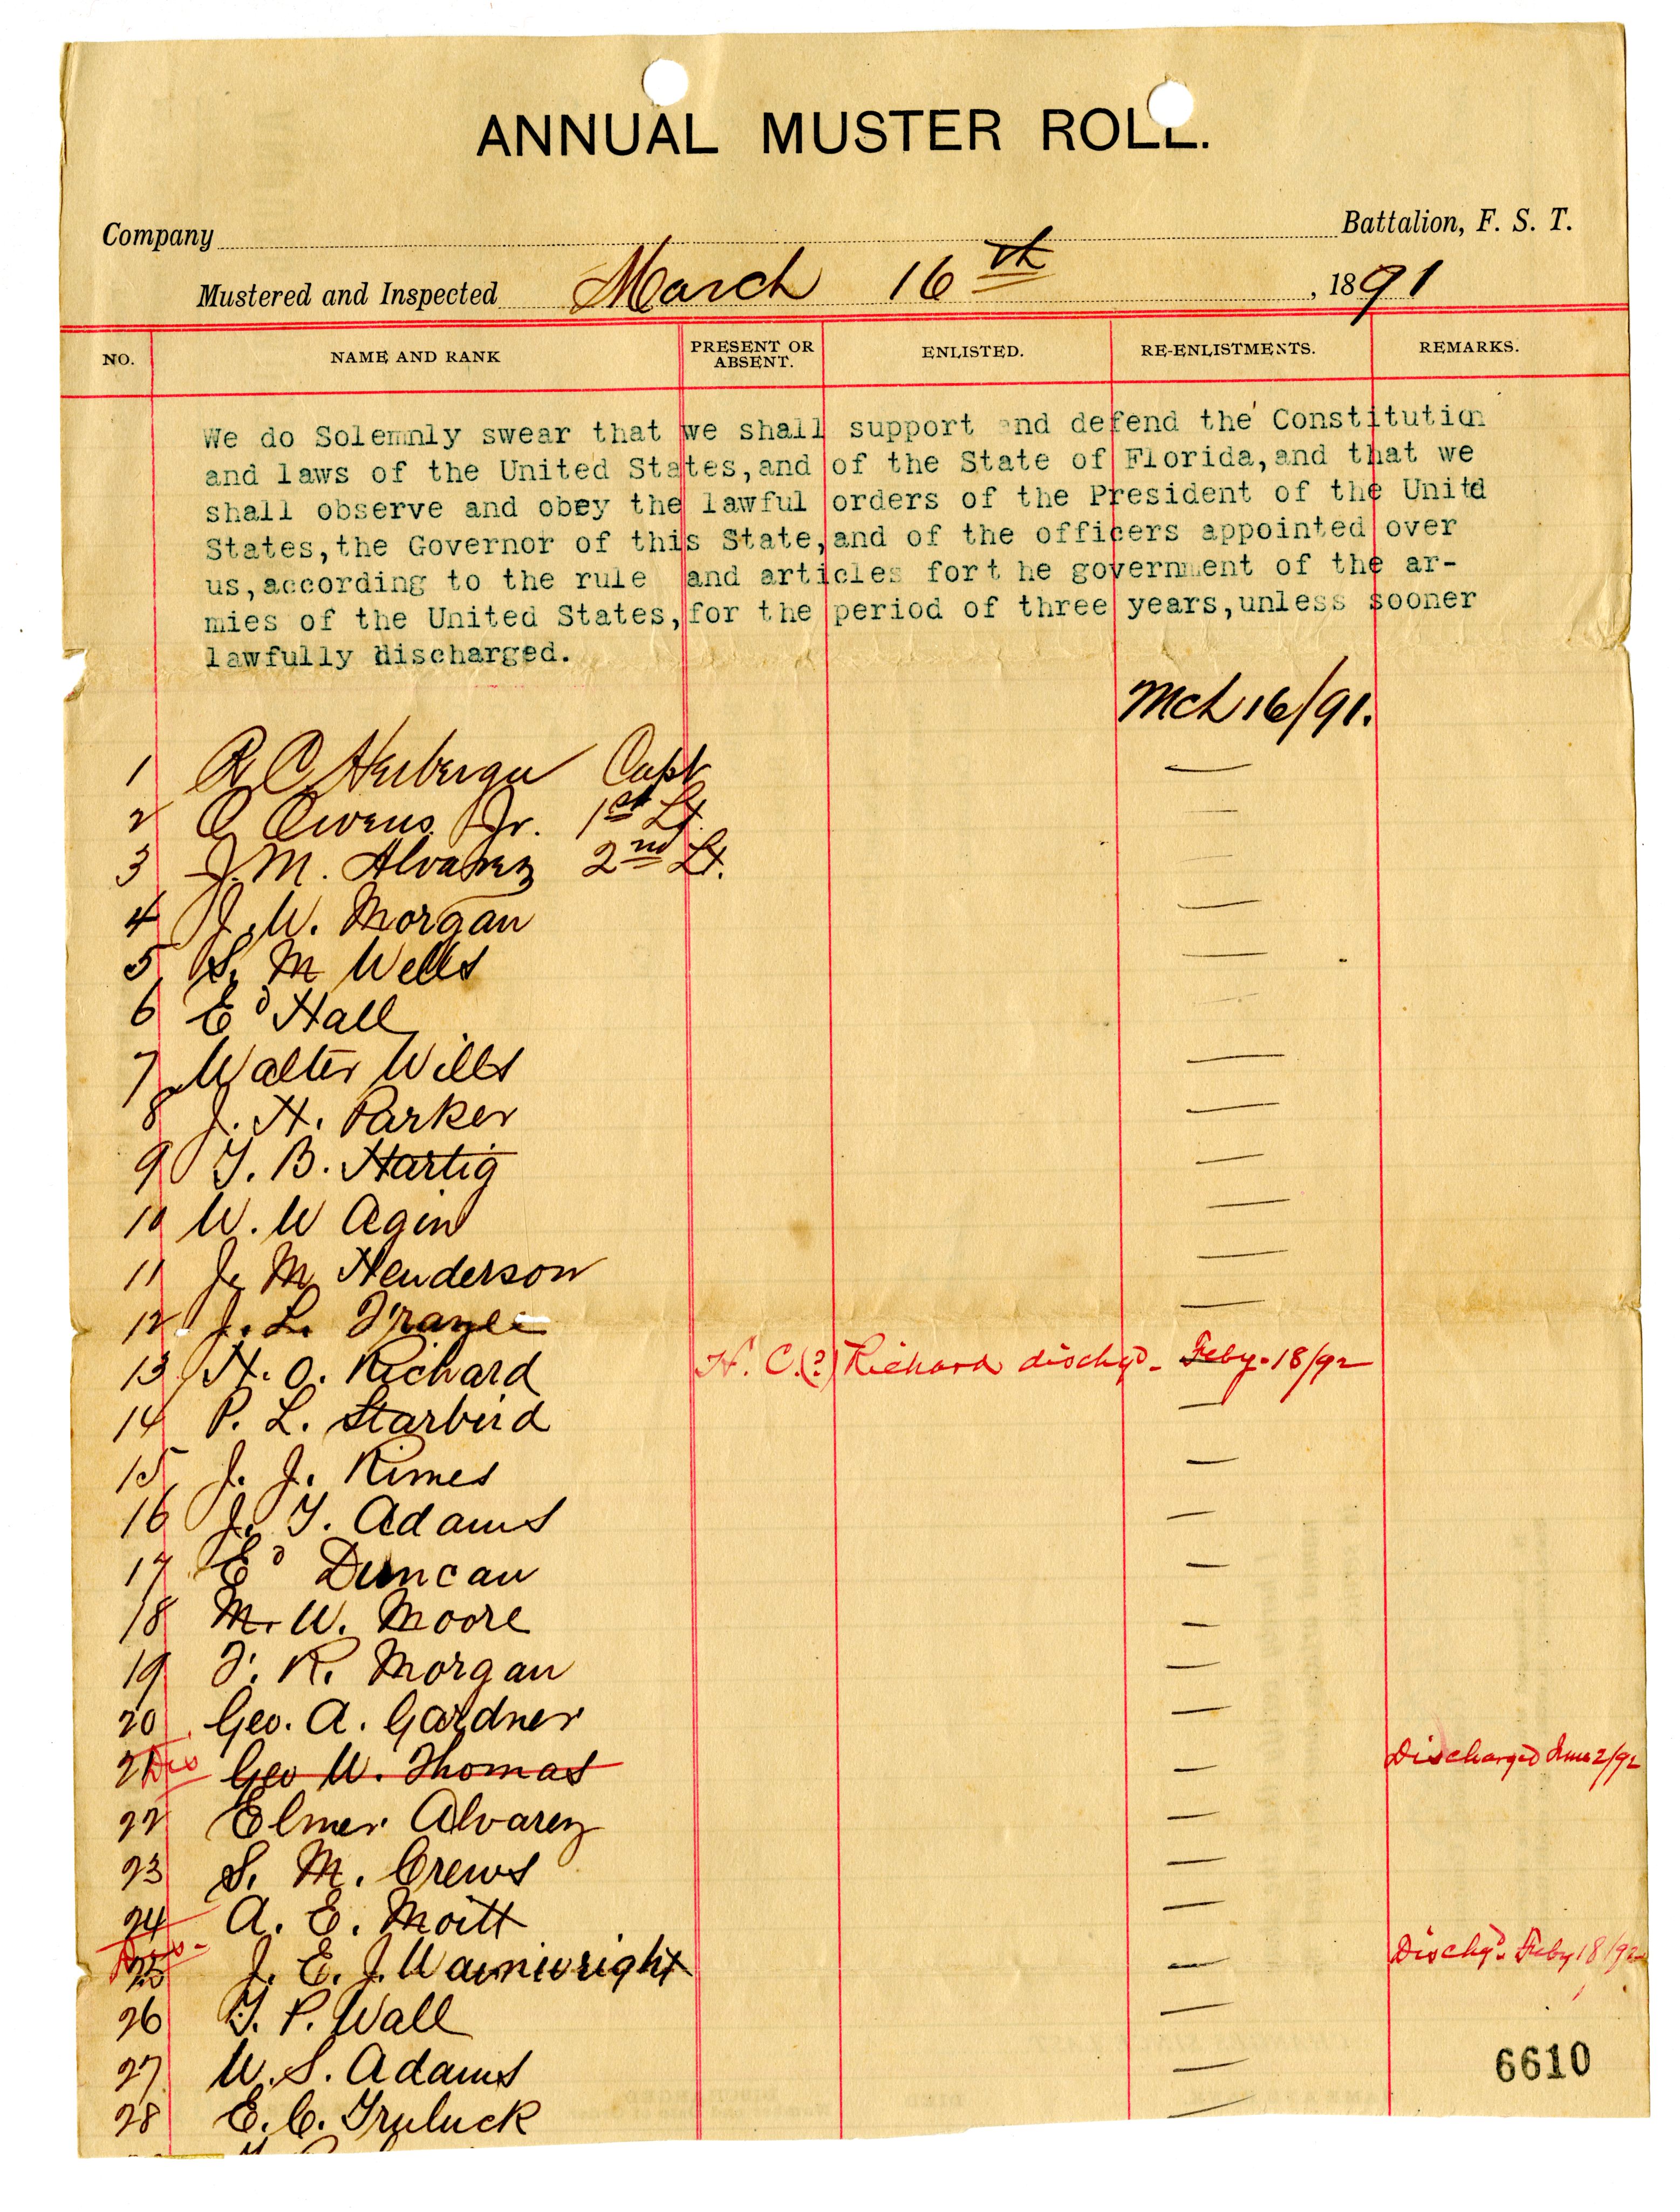 ANNUAL MUSTER ROLL.
Company Battalion, F. S. T.
Mustered and Inspected March 16th , 1891
NO. NAME AND RANK PRESENT OR ABSENT. ENLISTED. RE-ENLISTMENTS. REMARKS.
We do Solemnly swear that we shall support and defend the Constitution
and laws of the United States,and of the State of Florida,and that we
shall observe and obey the lawful orders of the President of the Unitd
States,the Governor of this State,and of the officers appointed over
us,according to the rule and articles fort he government of the ar-
mies of the United States,for the period of three years,unless sooner
lawfully discharged.
Mch 16/91.
1 R C Capt
2 O Owens Jr. 1st Lt.
3 J. M. Alvarez 2nd Lt.
4 J. W. Morgan
5 S. M Wells
6 Ed Hall
7 Walter Wills
8 J. H. Parker
9 T. B. Hartig
10 W. W Agin
11 J. M. Henderson
12 J. L.
13 H. O. Richard H. C.(?) Richard dischg'd - Feby. 18/92
14 P. L. Starbird
15 J. J. Rimes
16 J. T. Adams
17 Ed Duncan
18 M. W. Moore
19 F. R. Morgan
20 Geo. A. Gardner
21 Dis Geo W. Thomas Discharged June 2/92
22 Elmer Alvarez
23 S. M. Crews
24 A. E. Moitt
Dis-
25 J. E. J. Wainwright Dischg'd Feby 18/92
26 T. P. Wall
27 W. S. Adams
28 E. C. Truluck
6610